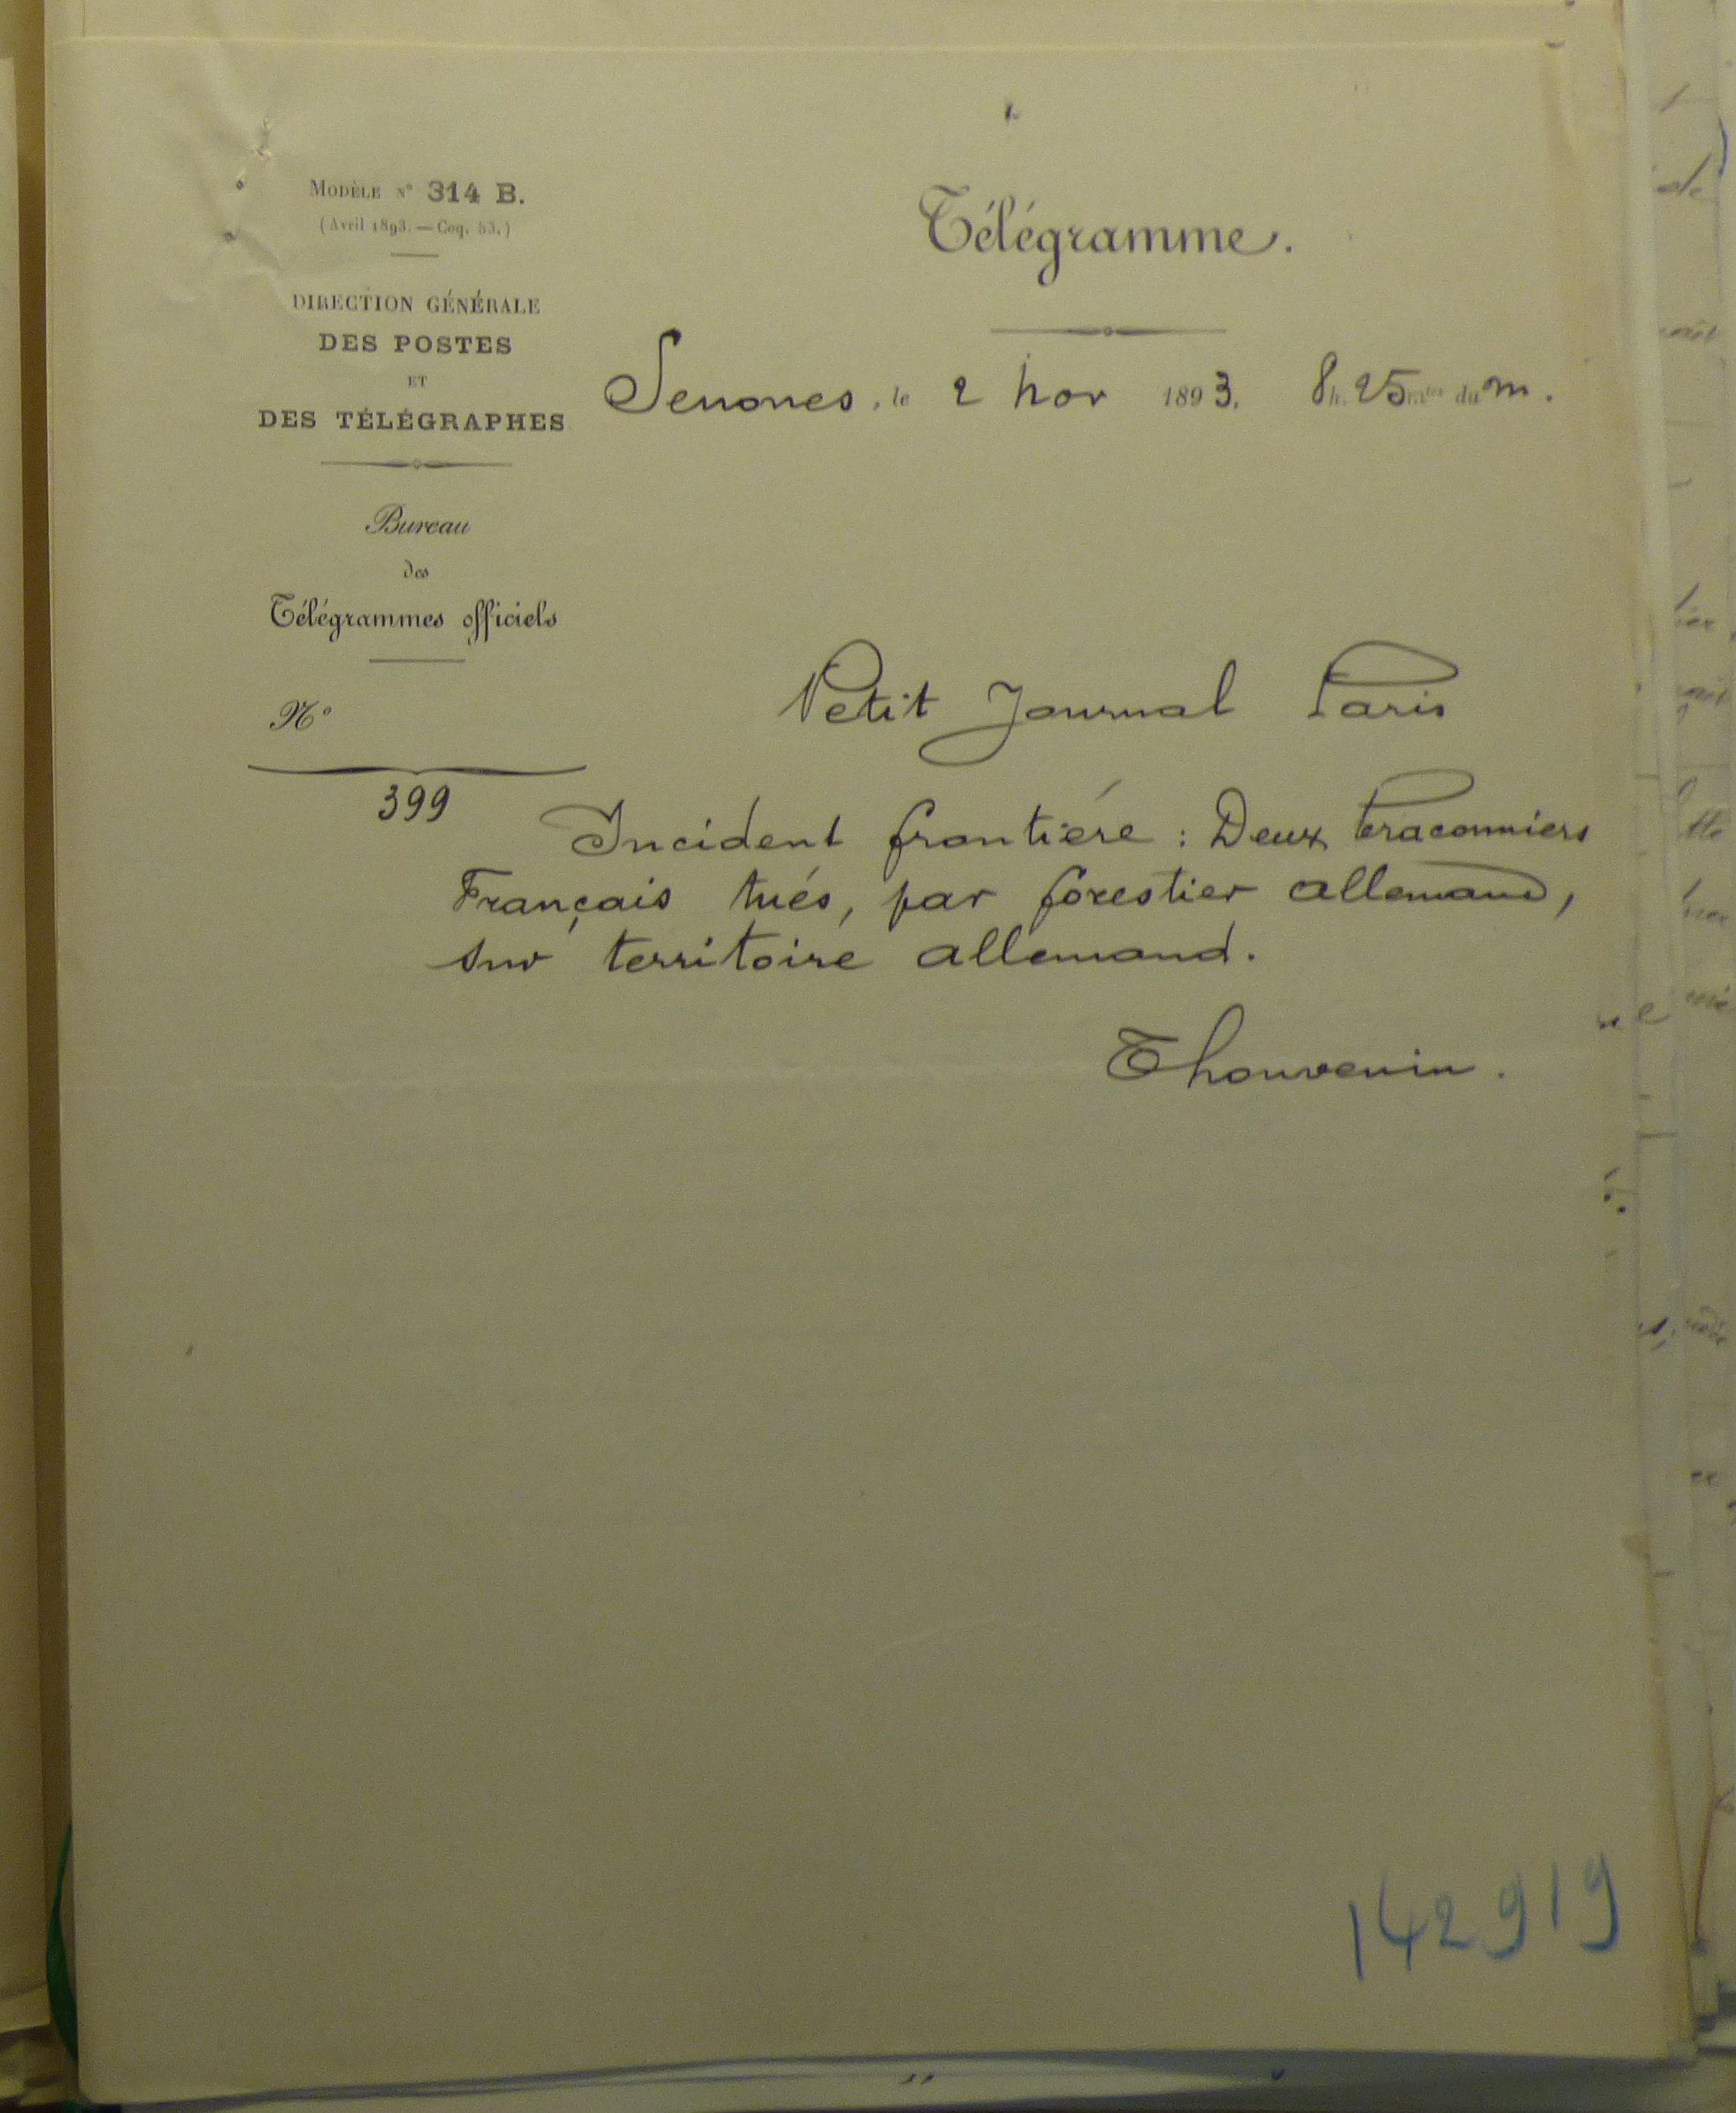 Modèle N° 314 B.
(Avril 1893. — Coq. 53.)
DIRECTION GÉNÉRALE
DES POSTES
ET
DES TÉLÉGRAPHES
Bureau
des
Télégrammes officiels
N°
399
Télégramme.
Senones, le 2 nov 1893. 8h. 25mtes du m.
Petit Journal Paris
Incident frontière : Deux braconniers
Français tués, par forestier allemand,
sur territoire allemand.
Thouvenin.
142919